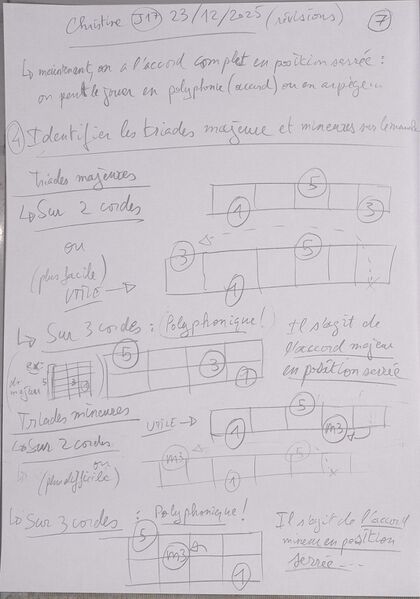 Christine J17 23/12/2025 (révisions) 7
↳ maintenant, on a l'accord complet en position serrée :
on peut le jouer en polyphonie (accord) ou en arpège...
4 Identifier les triades majeure et mineures sur le manche
Triades majeures
↳ Sur 2 cordes
5
1 3
ou
(plus facile)
UTILE →
3 5
1
↳ Sur 3 cordes : Polyphonique !
Il s'agit de
l'accord majeur
en position serrée
ex:
do
majeur
5
5
3
1
Triades mineures
UTILE →
5
1 m3
↳ Sur 2 cordes
ou
(plus difficile)
m3 5
1
↳ Sur 3 cordes : Polyphonique !
Il s'agit de l'accord
mineur en position
serrée...
5
m3
1